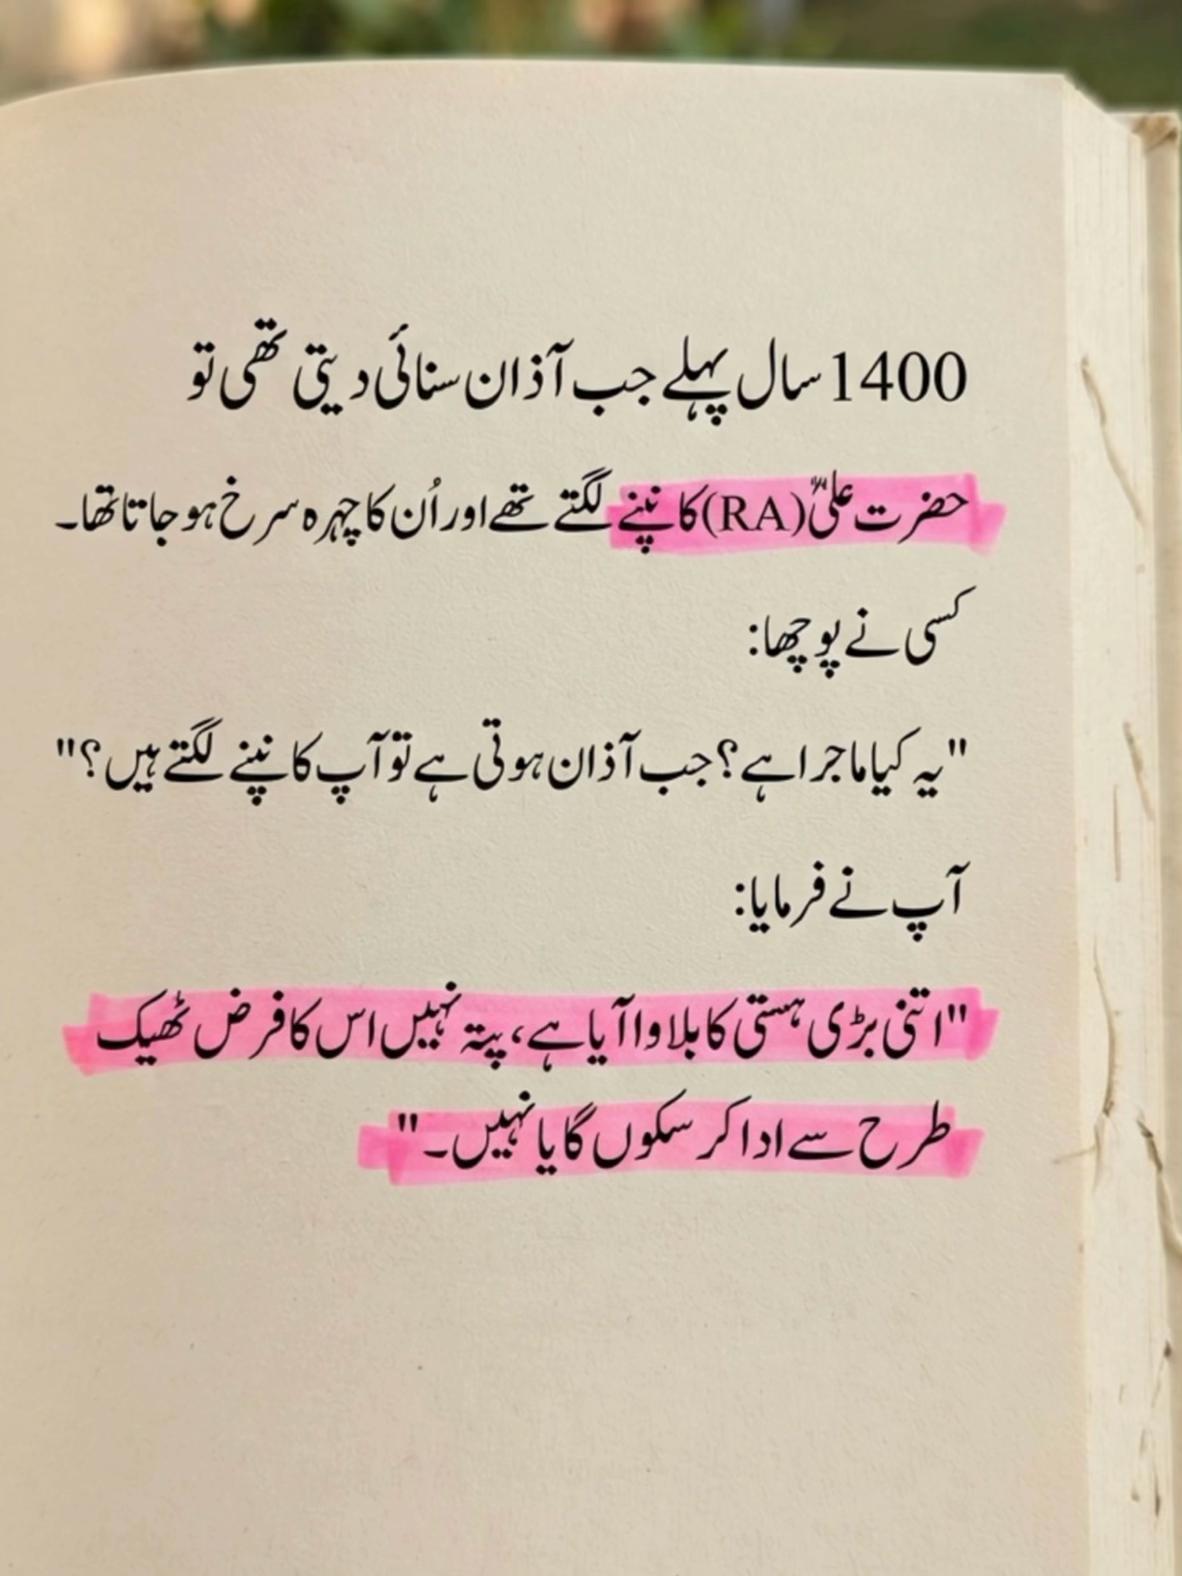 1400 سال پہلے جب آذان سنائی دیتی تھی تو
حضرت علیؓ (RA) کانپنے لگتے تھے اور اُن کا چہرہ سرخ ہو جاتا تھا۔
کسی نے پوچھا:
"یہ کیا ماجرا ہے؟ جب آذان ہوتی ہے تو آپ کانپنے لگتے ہیں؟"
آپ نے فرمایا:
"اتنی بڑی ہستی کا بلاوا آیا ہے، پتہ نہیں اس کا فرض ٹھیک
طرح سے ادا کر سکوں گا یا نہیں۔"